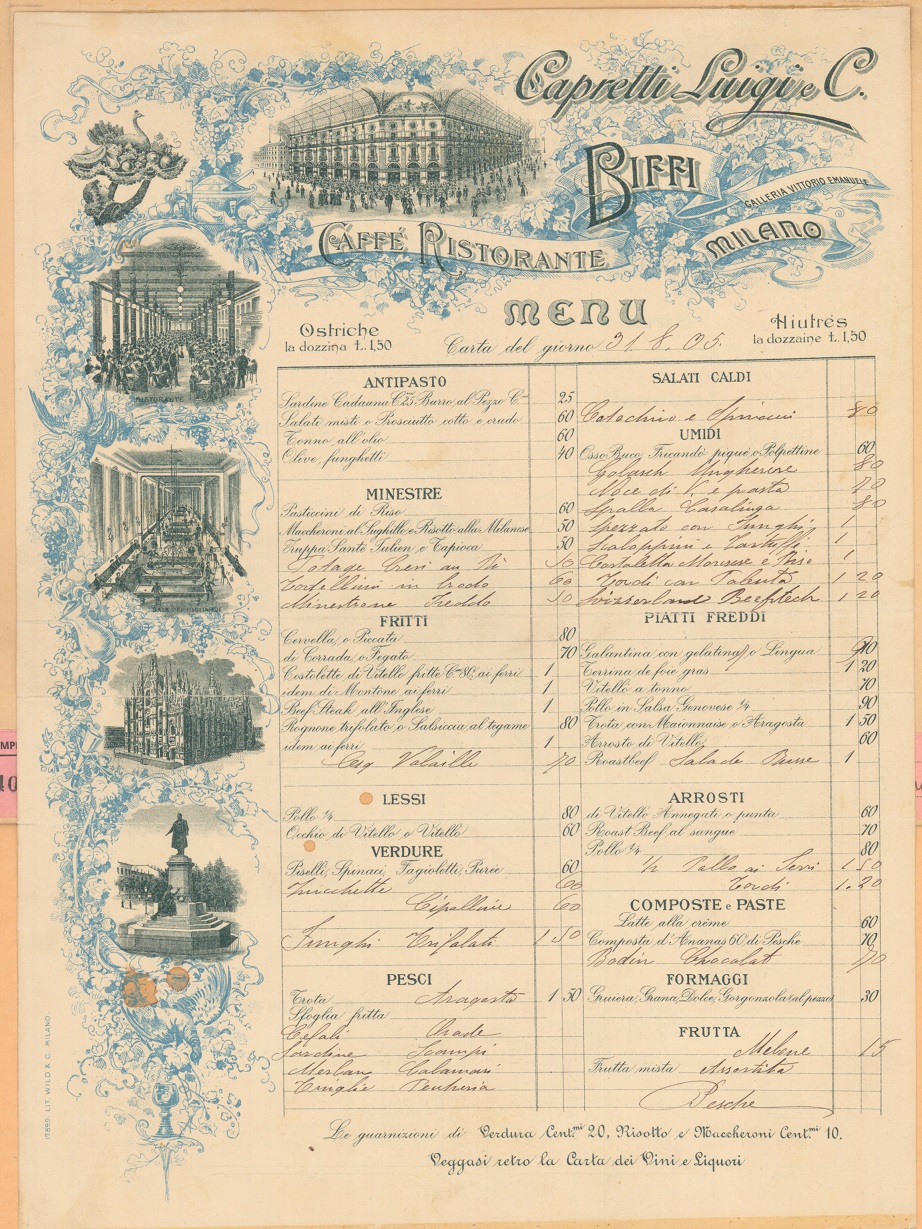 Capretti Luigi e C.
BIFFI
GALLERIA VITTORIO EMANUELE
MILANO
CAFFÉ RISTORANTE
RISTORANTE
MENU
Ostriche
la dozzina £. 1,50
Hiutrés
la dozzaine £. 1,50
Carta del giorno 31. 8. 05.
ANTIPASTO
Sardine Cadauna C. 25 Burro al Pezzo C. 25
Salati misti e Prosciutto cotto e crudo 60
Tonno all'olio 60
Olive, funghetti 40
MINESTRE
Pasticcini di Riso 60
Maccheroni al Sughillo e Risotto alla Milanese 50
Zuppa Santé Julien e Tapioca 50
Potage Creci au Ri 50
Tortellini in brodo 60
Minestrone Freddo 50
FRITTI
Cervella o Piccata 80
di Corrada o Fegato 70
Costolette di Vitello fritte C. 80, ai ferri 1
idem di Montone ai ferri 1
Beef Steak all'Inglese 1
Rognone trifolato o Salsiccia al tegame 80
idem ai ferri 1
Volaille 70
LESSI
Pollo ¼ 80
Occhio di Vitello o Vitello 60
VERDURE
Piselli, Spinaci, Fagioletti, Purée 60
Zucchette 60
Cipolline 60
Funghi Trifolati 1 50
PESCI
Trota Aragosta 1 50
Sfoglia fritta
Cefali Orade
Sardine Scampi
Merlan Calamari
Triglie Pescheria
SALATI CALDI
Cotechino e Spinacci 80
UMIDI
Osso Buco, Fricandò piqué o Polpettine 60
Golasch Ungherese 80
Noce di V. e pasta 70
Spalla Casalinga 80
Spezzato con Funghi 1
Scaloppini e Tartuffi 1
Costoletta Morisese e Riso 1
Tordi con Polenta 1 20
Svizzerland Beefstech 1 20
PIATTI FREDDI
Galantina con gelatina o Lingua 90
Terrina de foie gras 1 20
Vitello a tonno 70
Pollo in Salsa Genovese ¼ 90
Trota con Maionnaise o Aragosta 1 50
Arrosto di Vitello 60
Roastbeef Salade Russe 1
ARROSTI
di Vitello Annegati o punta 60
Roast Beef al sangue 70
Pollo ¼ 80
½ Pollo ai Ferri 1 50
Tordi 1.20
COMPOSTE e PASTE
Latte alla crême 60
Composta d'Ananas 60 di Pesche 70
Bodin Chocolat 70
FORMAGGI
Gruiera, Grana, Dolce, Gorgonzola (al pezzo) 30
FRUTTA
Melone 15
Frutta mista Assortita
Pesche
Le guarnizioni di Verdura Cent.mi 20, Risotto e Maccheroni Cent.mi 10.
Veggasi retro la Carta dei Vini e Liquori
17895. LIT. WILD & C. MILANO